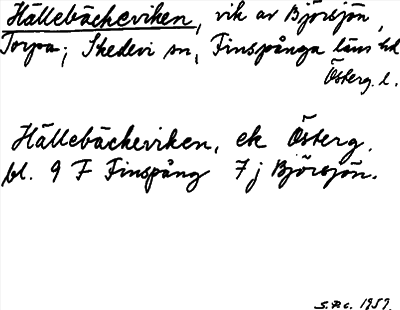 Hällebäckeviken, vik av Björsjön,
Torpa; Skedevi sn, Finspånga läns hd
Österg. l.
Hällebäckeviken, ek Österg.
bl. 9 F Finspång 7 j Björsjön.
S.Bc. 1959.